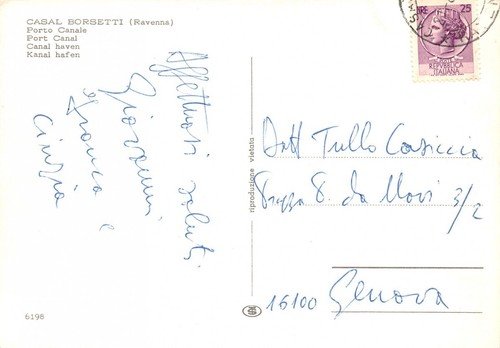 CASAL BORSETTI (Ravenna)
Porto Canale
Port Canal
Canal haven
Kanal hafen
LIRE 25
REPUBBLICA
ITALIANA
Affettuosi saluti
Giovanni
Franca e
Cinzia
riproduzione vietata
Dott Tullo Casiccia
Piazza G. da Novi 3/2
16100 Genova
6198